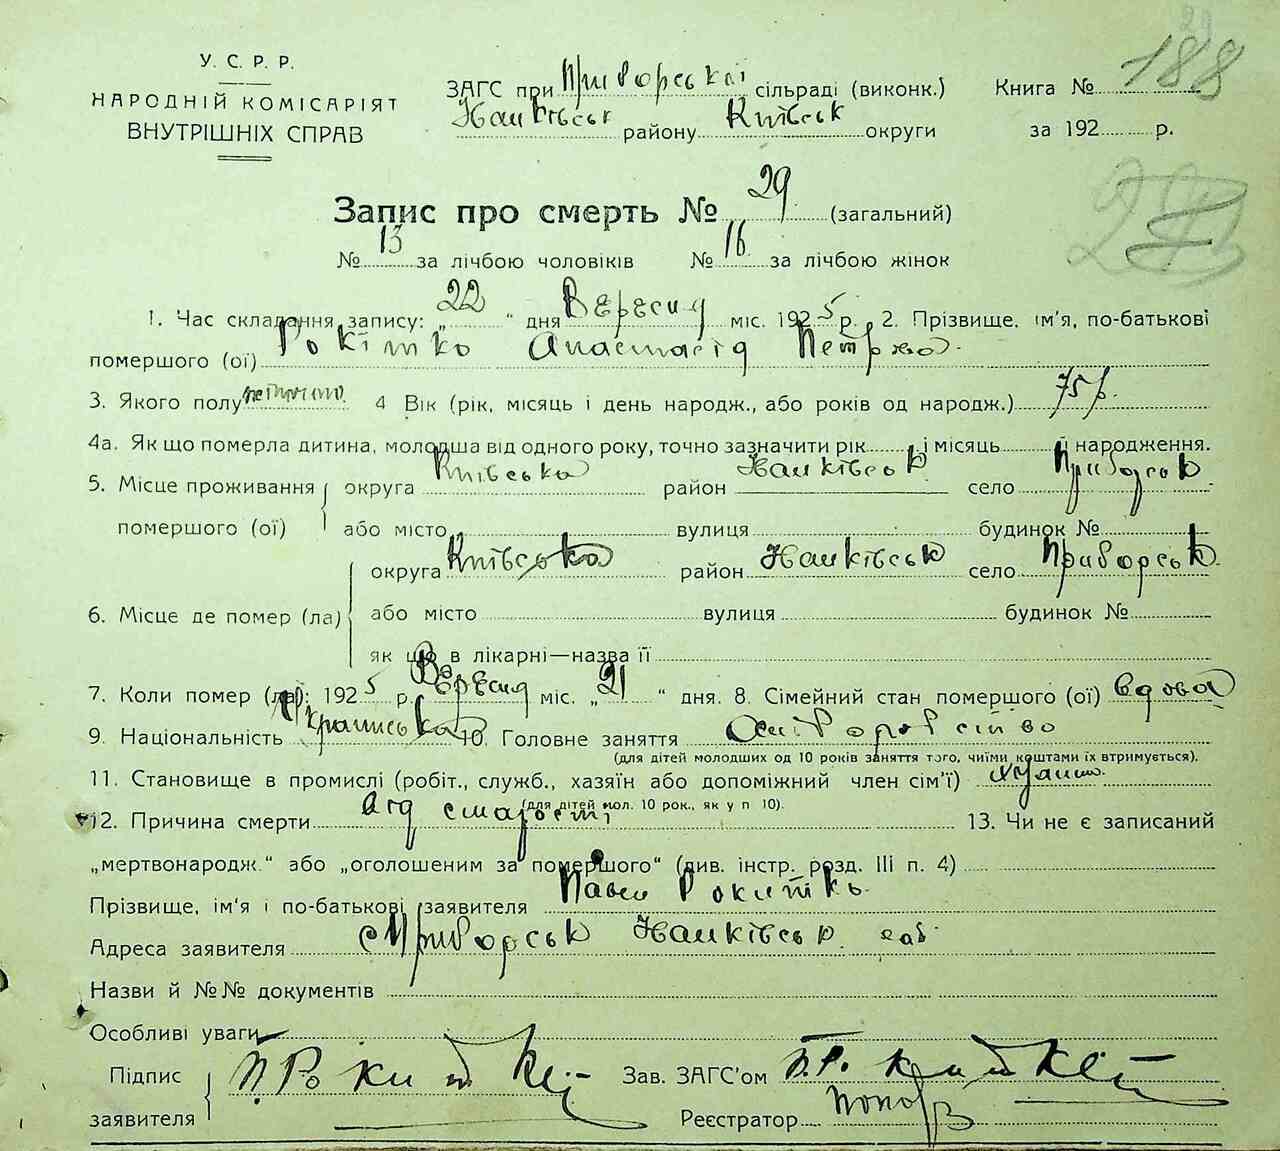 У. С. Р. Р.
НАРОДНІЙ КОМІСАРІЯТ
ВНУТРІШНІХ СПРАВ
ЗАГС при Приборській сільраді (виконк.)
Ханківськ району Київськ округи
Книга № 188
за 192 р.
Запис про смерть № 29 (загальний)
№ 13 за лічбою чоловіків № 16 за лічбою жінок
1. Час складання запису: „22“ дня Вересня міс. 1925 р. 2. Прізвище, ім'я, по-батькові
помершого (ої) Рокітко Анастасія Петрова
3. Якого полу 4 Вік (рік, місяць і день народж., або років од народж.) 75 р.
4а. Як що померла дитина, молодша від одного року, точно зазначити рік і місяць й народження.
5. Місце проживання помершого (ої) округа Київська район Ханківськ село Приборськ
або місто вулиця будинок №
6. Місце де помер (ла) округа Київська район Ханківськ село Приборськ
або місто вулиця будинок №
як що в лікарні—назва її
7. Коли помер (ла): 1925 р. Вересня міс. „21“ дня. 8. Сімейний стан помершого (ої) вдова
9. Національність Українська 10. Головне заняття
(для дітей молодших од 10 років заняття того, чиїми коштами їх втримується).
11. Становище в промислі (робіт., служб., хазяїн або допоміжний член сім'ї)
(для дітей мол. 10 рок., як у п 10).
12. Причина смерти Від старості 13. Чи не є записаний
„мертвонародж.“ або „оголошеним за помершого“ (див. інстр. розд. III п. 4)
Прізвище, ім'я і по-батькові заявителя Павел Рокиткь
Адреса заявителя с Приборськ Ханківськ
Назви й №№ документів
Особливі уваги
Підпис заявителя П. Рокиткь Зав. ЗАГС'ом
Реєстратор